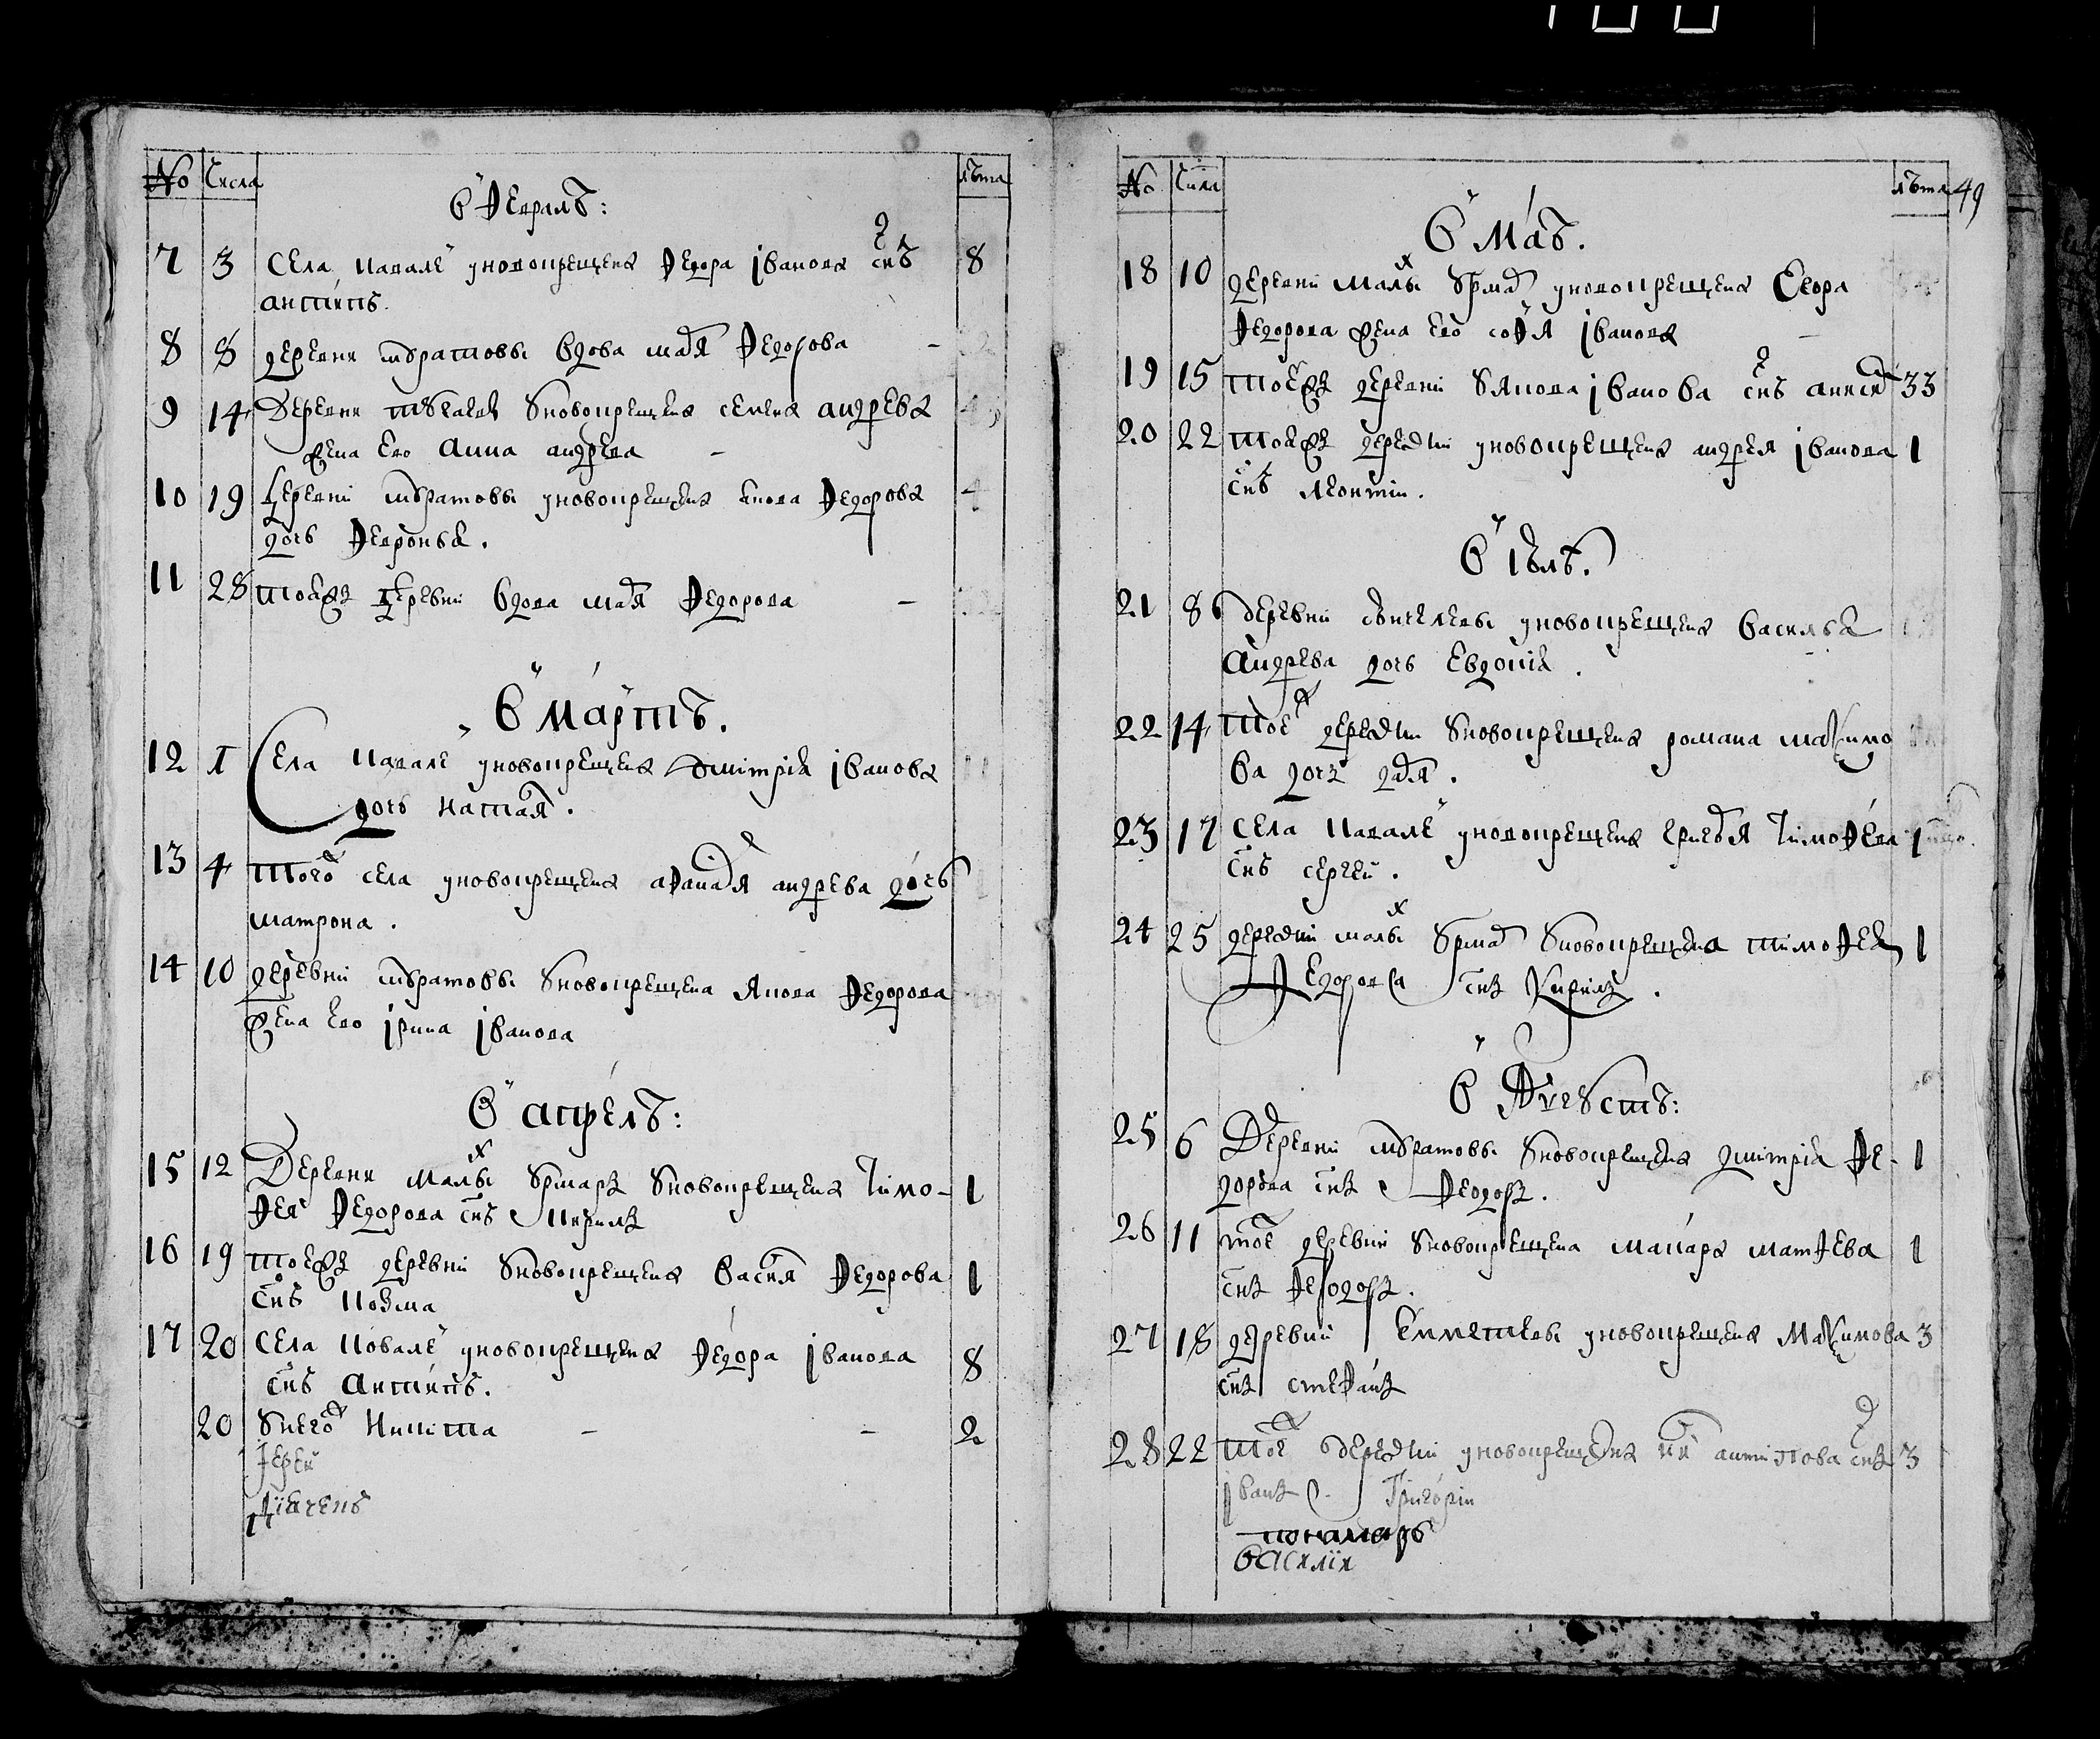 No Числа лѣта
В Февралѣ:
7 3 Села Кавале у новокрещена Федора Иванова снъ 8
антипъ.
8 8 деревни шбратовы вдова мαря Федорова -
9 14 Деревни у новокрещена семена андрева
жена ево Анна андрева -
10 19 Деревни шбратовы у новокрещена Федорова 4
дочь Февронья.
11 28 тоеж деревни вдова маря Федорова -
В мартѣ.
12 1 Села Кавале у новокрещена Дмитрия Иванова
дочь настая.
13 4 того села у новокрещена аѳанася андрева дочь
матрона.
14 10 деревни шбратовы у новокрещена Якова Федорова
жена ево Ирина Иванова
В апрелѣ:
15 12 Деревни малых Ѹрмаръ у новокрещена Тимо- 1
фея Федорова снъ Кирилъ
16 19 тоеж деревни у новокрещена Васия Федорова 1
снъ Козма
17 20 Села Ковале у новокрещена Федора Иванова 8
снъ Антипъ.
20 У него Никита - - 2
Иерей
No Числа лѣта 49
В Маѣ.
18 10 деревни малых Ѹрмар у новокрещена Егора
Федорова жена ево софя Иванова -
19 15 тоеж деревни Ѹ Якова Иванова снъ 33
20 22 тоеж деревни у новокрещена андрея Иванова 1
снъ леонтии.
В Июлѣ.
21 8 деревни у новокрещена Василья
Андрева дочь Евдокия.
22 14 тое деревни у новокрещена романа маѯимо
ва дочь даря.
23 17 Села Кавале у новокрещена Тимофева 1
снъ сергеи.
24 25 деревни малых Ѹрмар у новокрещена тимофея 1
Федорова снъ Кирилъ.
В Августѣ:
25 6 Деревни шбратовы у новокрещена дмитрия Фе- 1
дорова снъ Федоръ.
26 11 тое деревни у новокрещена макара матфева 1
снъ Федоръ.
27 18 деревни у новокрещена Маѯимова 3
снъ стефанъ
28 22 тое деревни у новокрещена антипова снъ 3
Иванъ Григории
пономарь
Василии